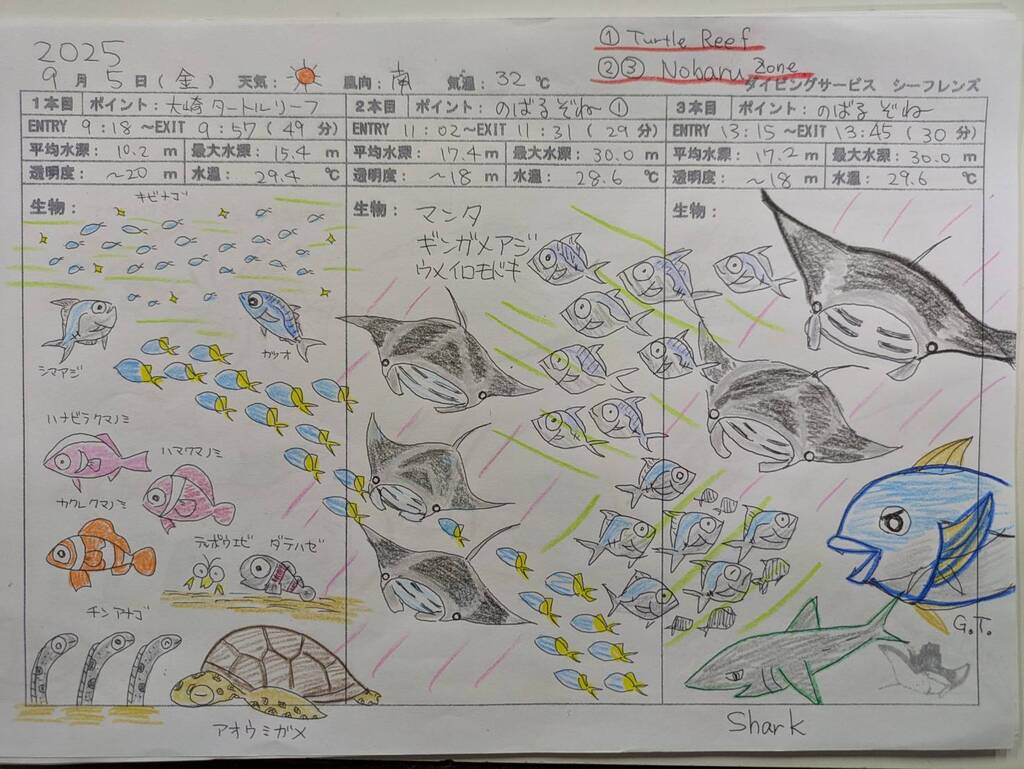 2025
① Turtle Reef
②③ Nobaru Zone
9月5日(金) 天気: 風向:南 気温:32℃
ダイビングサービス シーフレンズ
1本目 ポイント:大崎タートルリーフ
ENTRY 9:18~EXIT 9:57(49分)
平均水深:10.2m 最大水深:15.4m
透明度:~20m 水温:29.4℃
生物:
キビナゴ
シマアジ
カツオ
ハナビラクマノミ
ハマクマノミ
カクレクマノミ
テッポウエビ ダテハゼ
チンアナゴ
アオウミガメ
2本目 ポイント:のばるぞね①
ENTRY 11:02~EXIT 11:31(29分)
平均水深:17.4m 最大水深:30.0m
透明度:~18m 水温:28.6℃
生物:マンタ
ギンガメアジ
ウメイロモドキ
3本目 ポイント:のばるぞね
ENTRY 13:15~EXIT 13:45(30分)
平均水深:17.2m 最大水深:30.0m
透明度:~18m 水温:29.6℃
生物:
G.T.
Shark